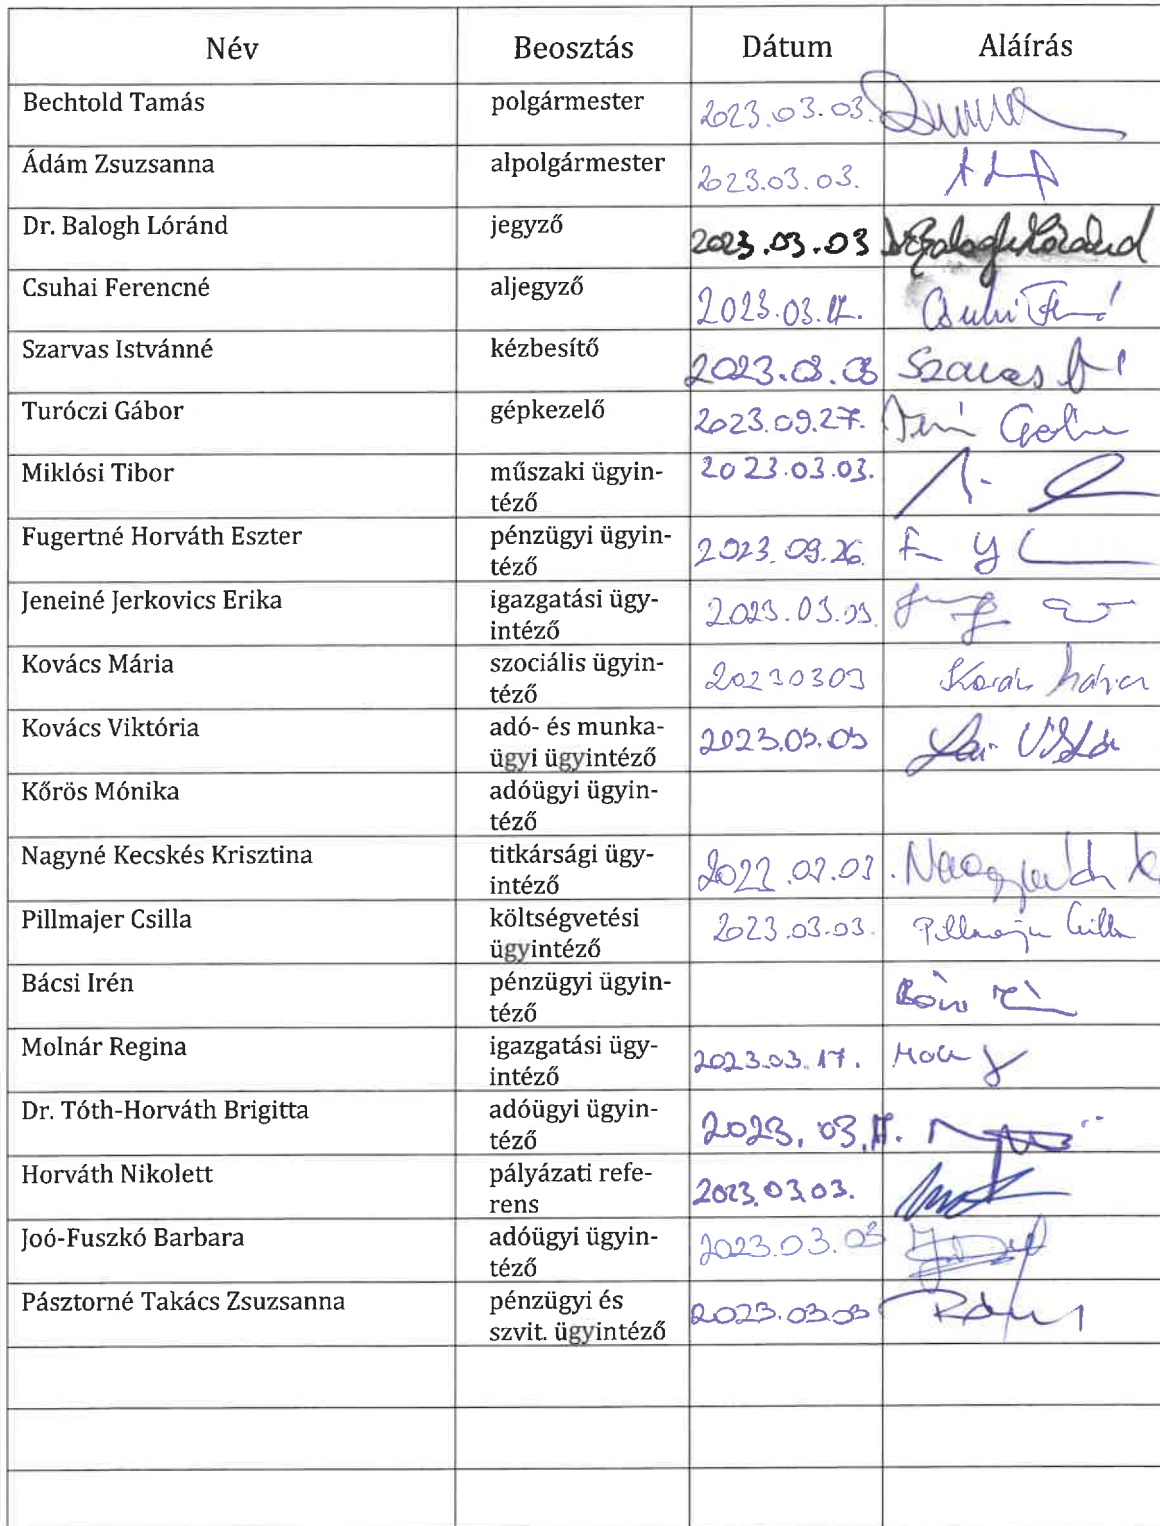 Név Beosztás Dátum Aláírás
Bechtold Tamás polgármester 2023.03.03.
Ádám Zsuzsanna alpolgármester 2023.03.03.
Dr. Balogh Lóránd jegyző 2023.03.03 Dr Balogh Lóránd
Csuhai Ferencné aljegyző 2023.03.17.
Szarvas Istvánné kézbesítő 2023.03.03 Szarvas
Turóczi Gábor gépkezelő 2023.09.27.
Miklósi Tibor műszaki ügyin-
téző 2023.03.03.
Fugertné Horváth Eszter pénzügyi ügyin-
téző 2023.09.26.
Jeneiné Jerkovics Erika igazgatási ügy-
intéző 2023.03.03.
Kovács Mária szociális ügyin-
téző 20230303 Kovács Mária
Kovács Viktória adó- és munka-
ügyi ügyintéző 2023.03.03
Kőrös Mónika adóügyi ügyin-
téző
Nagyné Kecskés Krisztina titkársági ügy-
intéző
Pillmajer Csilla költségvetési
ügyintéző 2023.03.03. Pillmajer Csilla
Bácsi Irén pénzügyi ügyin-
téző
Molnár Regina igazgatási ügy-
intéző 2023.03.17.
Dr. Tóth-Horváth Brigitta adóügyi ügyin-
téző 2023.03.17.
Horváth Nikolett pályázati refe-
rens 2023.03.03.
Joó-Fuszkó Barbara adóügyi ügyin-
téző 2023.03.03
Pásztorné Takács Zsuzsanna pénzügyi és
szvit. ügyintéző 2023.03.03